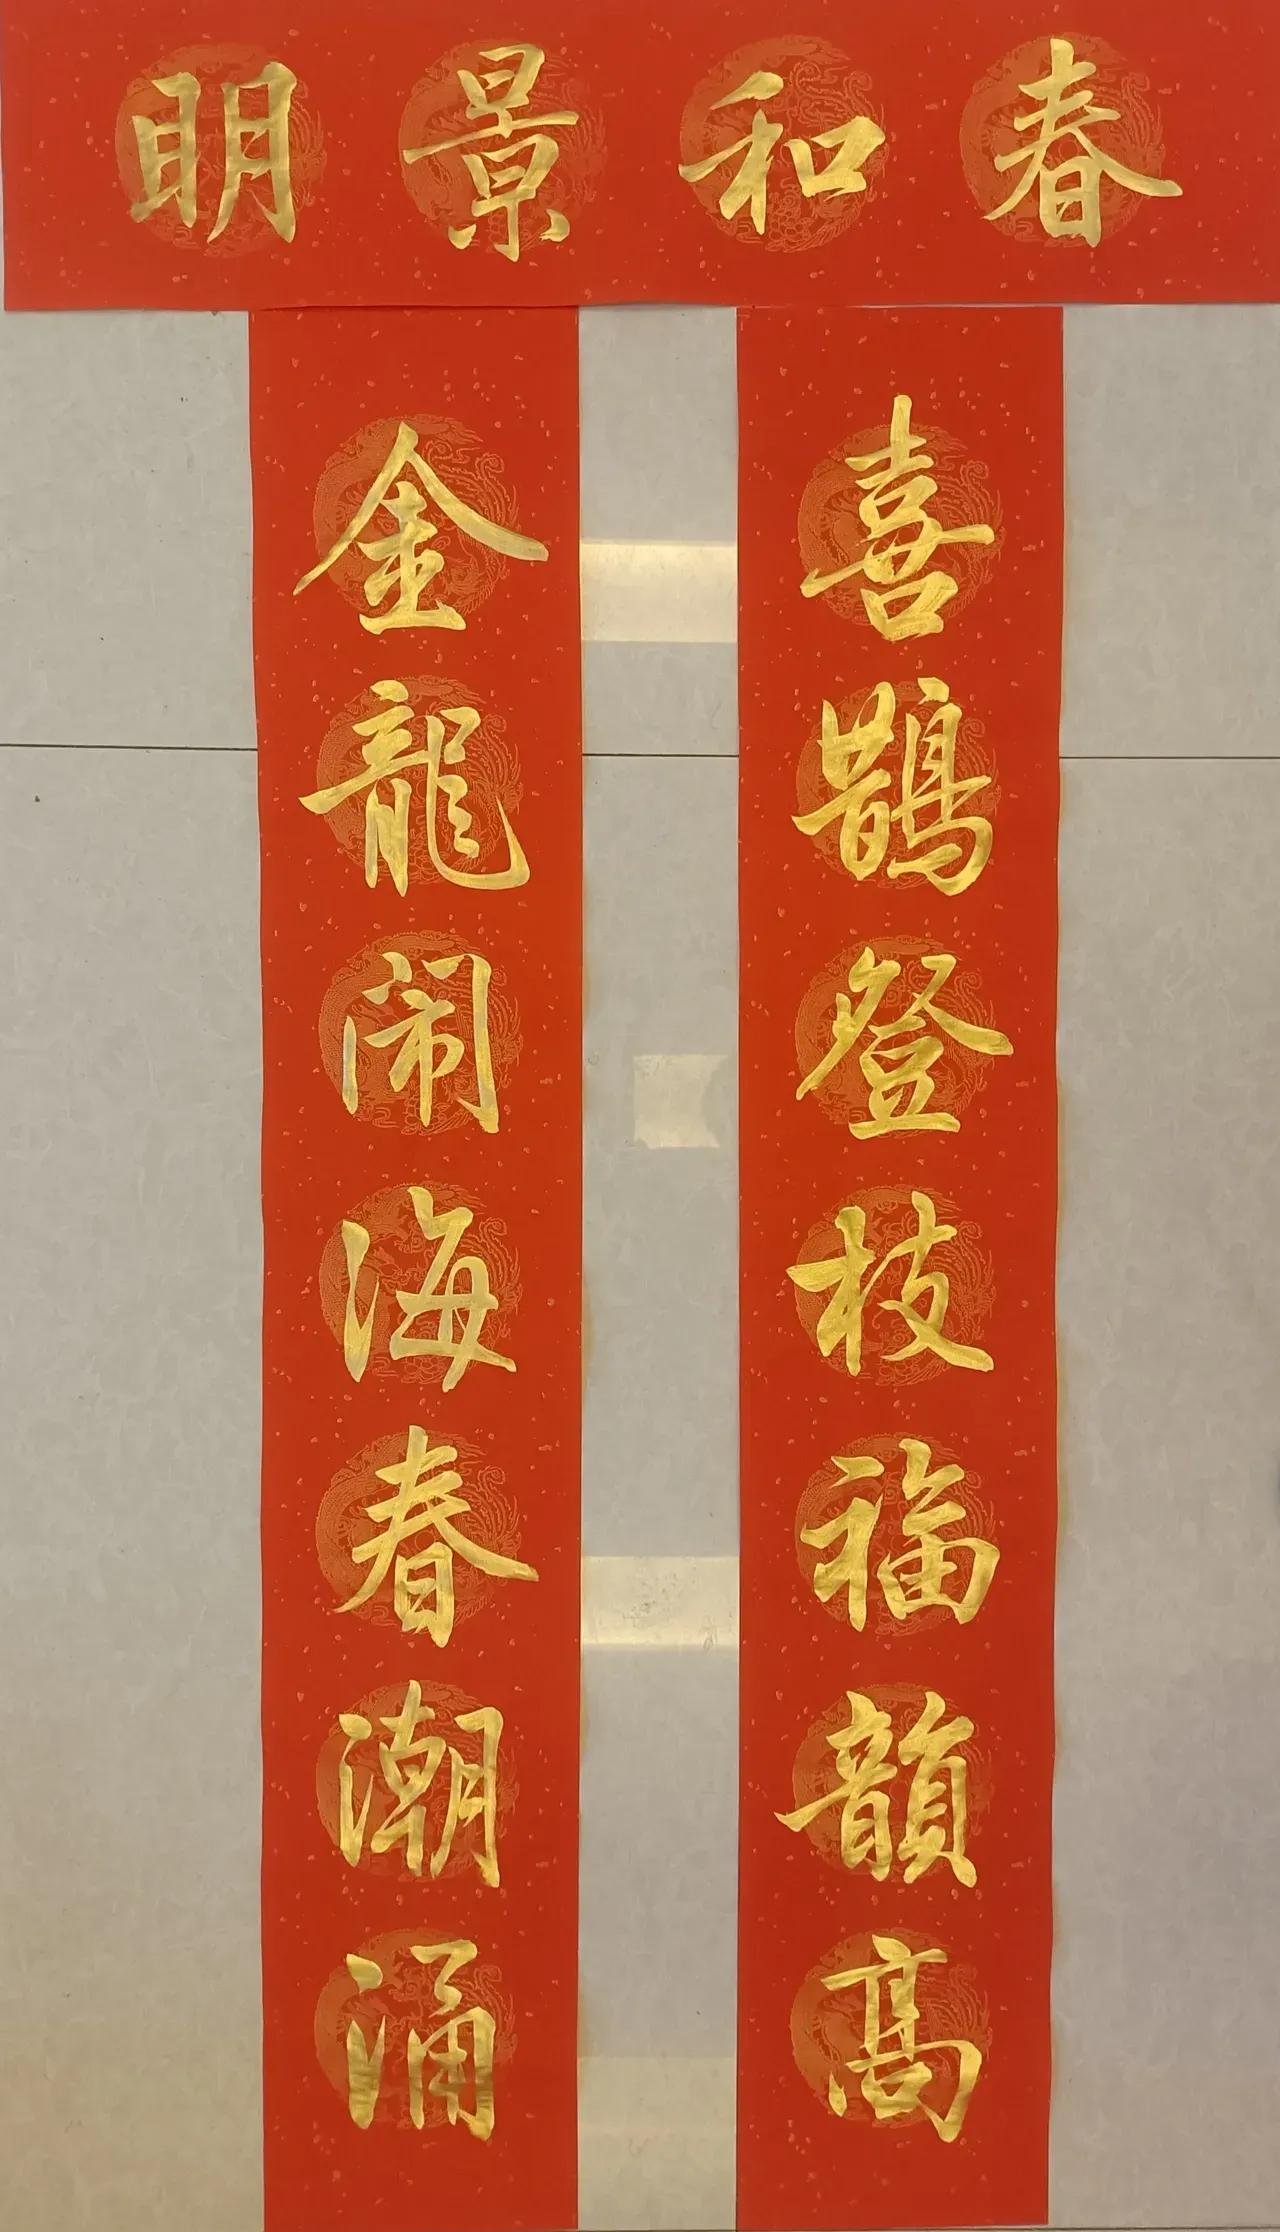 春和景明
喜鵲登枝福韻高
金龍闹海春潮涌